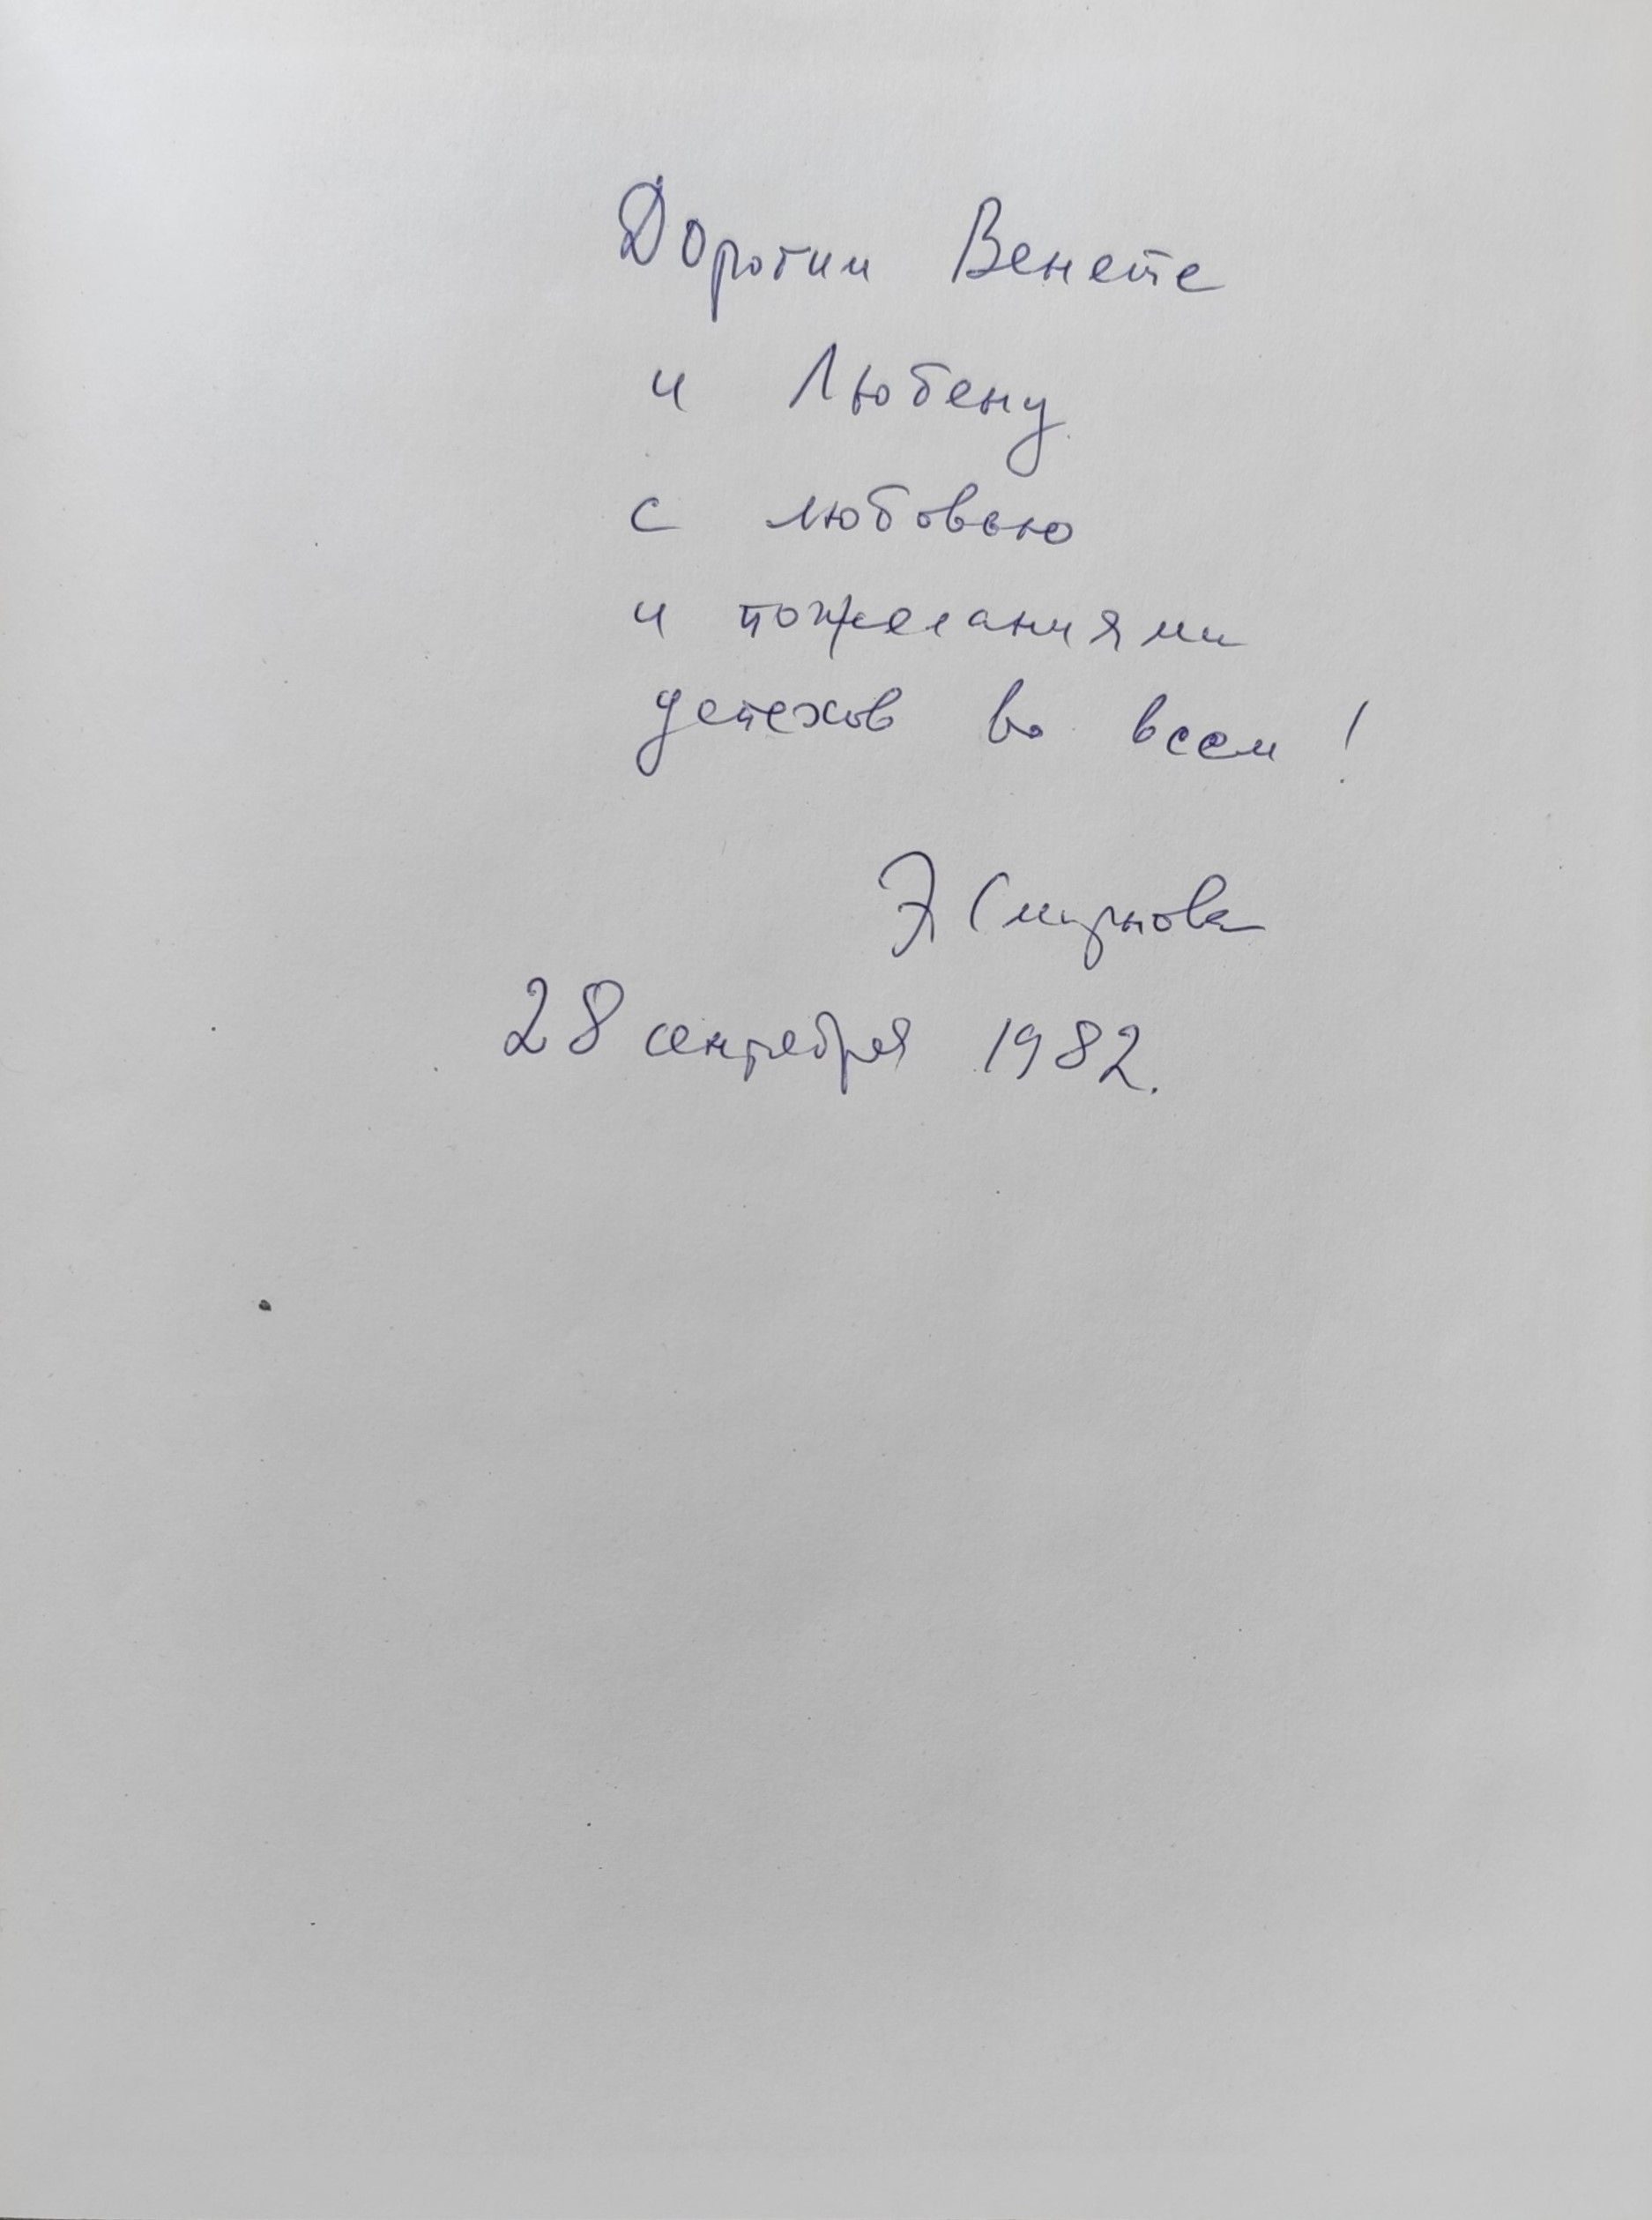 Доротии Венете
и Любену
с любовью
и пожеланиями
успехов во всем!
Э Смирнова
28 сентября 1982.